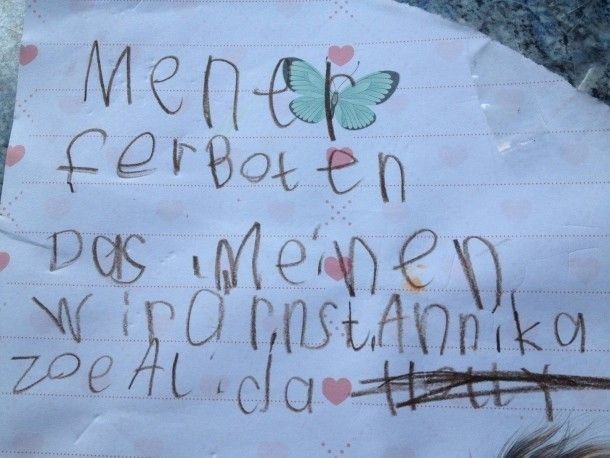 Mener
ferBoten
Das Meinen
wir Örnst. Annika
Zoe Alida Holly